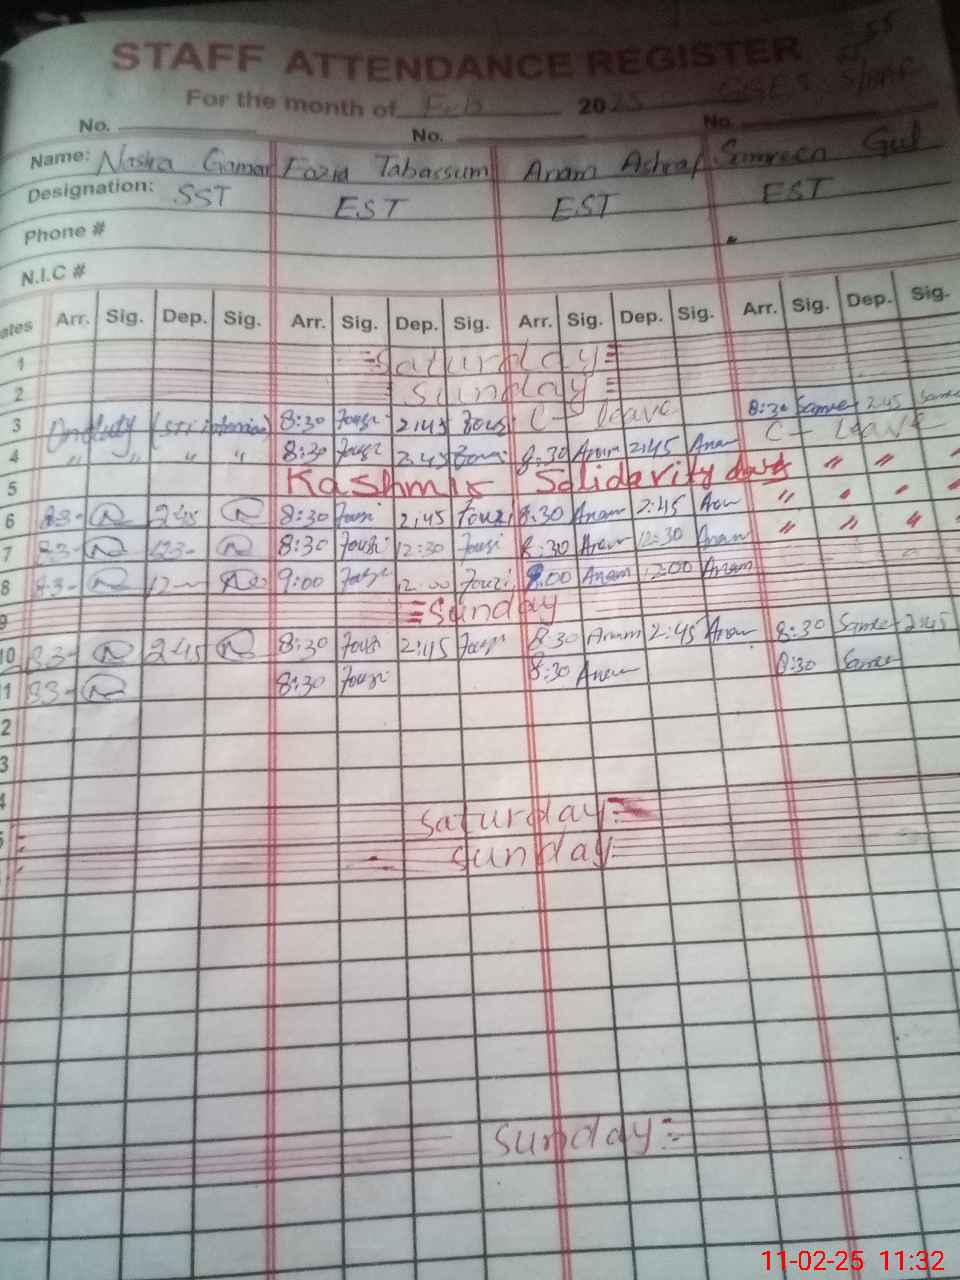 STAFF ATTENDANCE REGISTER
For the month of Feb 2025
No. No. No.
Name: Nasra Qamar Fozia Tabassum Anam Ashraf Samreen Gul
Designation: SST EST EST EST
Phone #
N.I.C #
ates Arr. Sig. Dep. Sig. Arr. Sig. Dep. Sig. Arr. Sig. Dep. Sig. Arr. Sig. Dep. Sig.
1 Saturday
2 Sunday
3 On duty 8:30 Fouzi 2:45 Fouzi C- leave 8:30 Samre 2:45 Samre
4 " " " " 8:30 Fouzi 2:45 Fouzi 8:30 Anam 2:45 Anam C- Leave
5 Kashmir Solidarity day " " "
6 83- 245 8:30 Fouzi 2:45 Fouzi 8:30 Anam 2:45 Anam " " " "
7 83- 123- 8:30 Fouzi 12:30 Fouzi 8:30 Anam 12:30 Anam " " " "
8 83- 12- 9:00 Fouzi 12:00 Fouzi 9:00 Anam 12:00 Anam
9 Sunday
10 83- 245 8:30 Fouzi 2:45 Fouzi 8:30 Anam 2:45 Anam 8:30 Samre 2:45
1 83- 8:30 Fouzi 8:30 Anam 8:30 Samre
2
3
4
Saturday
Sunday
Sunday
11-02-25 11:32